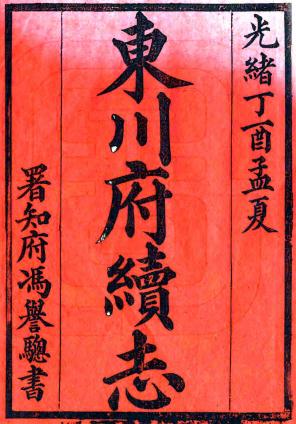 光緒丁酉孟夏
東川府續志
署知府馮譽驄書